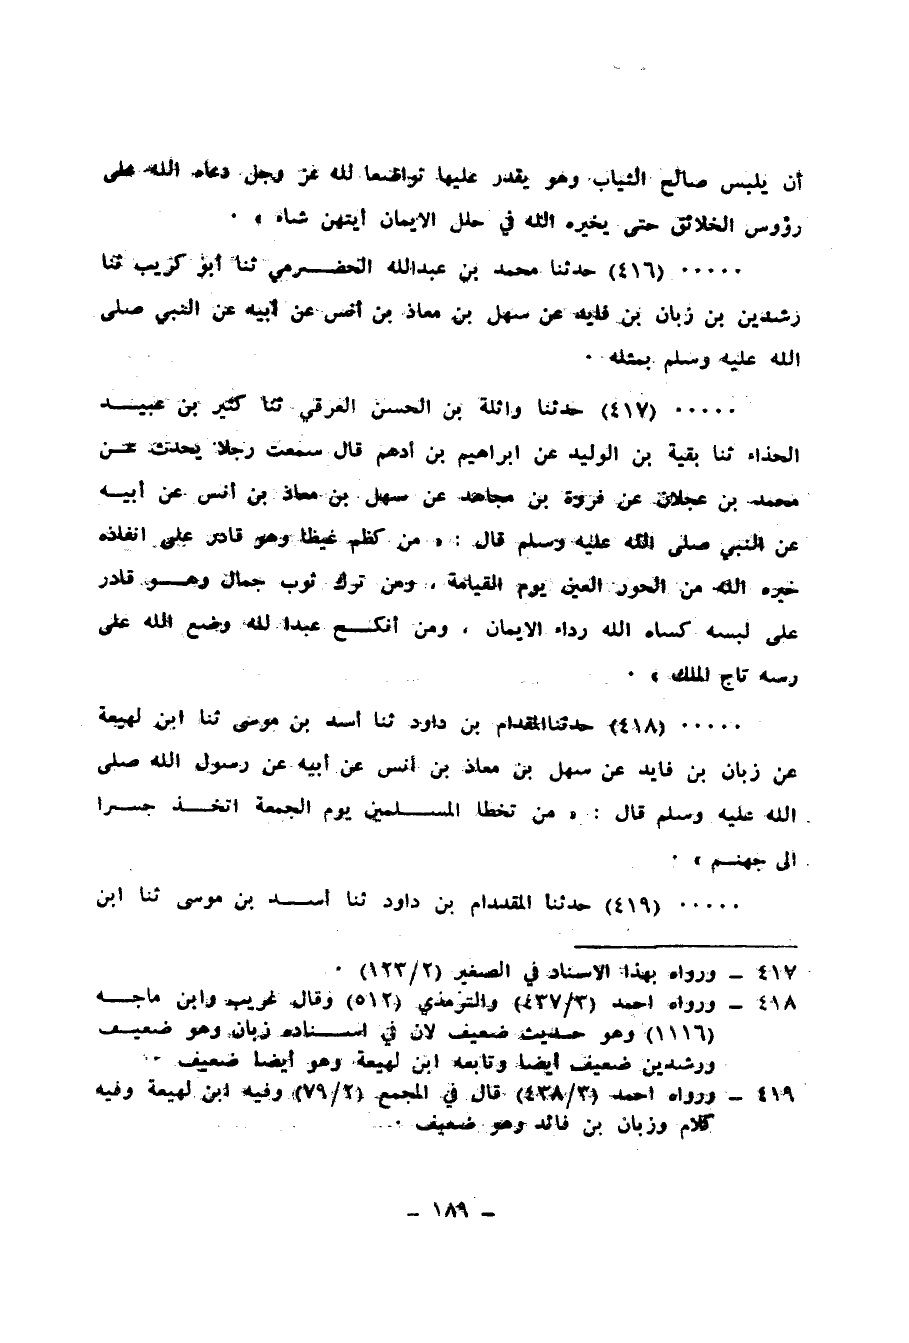 أن يلبس صالح الثياب وهو يقدر عليها تواضعا لله عز وجل دعاه الله على
رؤوس الخلائق حتى يخيره الله في حلل الايمان أيتهن شاء » ٠
٠٠٠٠٠ (٤١٦) حدثنا محمد بن عبدالله الحضرمي ثنا أبو كريب ثنا
رشدين بن زبان بن فايد عن سهل بن معاذ بن أنس عن أبيه عن النبي صلى
الله عليه وسلم بمثله ٠
٠٠٠٠٠ (٤١٧) حدثنا واثلة بن الحسن العرقي ثنا كثير بن عبيد
الحذاء ثنا بقية بن الوليد عن ابراهيم بن أدهم قال سمعت رجلا يحدث عن
محمد بن عجلان عن فروة بن مجاهد عن سهل بن معاذ بن أنس عن أبيه
عن النبي صلى الله عليه وسلم قال : « من كظم غيظا وهو قادر على انفاذه
خيره الله من الحور العين يوم القيامة ، ومن ترك ثوب جمال وهو قادر
على لبسه كساه الله رداء الايمان ، ومن أنكح عبدا لله وضع الله على
رسه تاج الملك » ٠
٠٠٠٠٠ (٤١٨) حدثناالمقدام بن داود ثنا أسد بن موسى ثنا ابن لهيعة
عن زبان بن فايد عن سهل بن معاذ بن أنس عن أبيه عن رسول الله صلى
الله عليه وسلم قال : « من تخطا المسلمين يوم الجمعة اتخذ جسرا
الى جهنم » ٠
٠٠٠٠٠ (٤١٩) حدثنا المقدام بن داود ثنا أسد بن موسى ثنا ابن
٤١٧ ــ ورواه بهذا الاسناد في الصغير (١٢٣/٢) ٠
٤١٨ ــ ورواه احمد (٤٣٧/٣) والترمذي (٥١٢) وقال غريب وابن ماجه
(١١١٦) وهو حديث ضعيف لان في اسناده زبان وهو ضعيف
ورشدين ضعيف أيضا وتابعه ابن لهيعة وهو أيضا ضعيف ٠
٤١٩ ــ ورواه احمد (٤٣٨/٣) قال في المجمع (٧٩/٢) وفيه ابن لهيعة وفيه
كلام وزبان بن فائد وهو ضعيف ٠
ــ ١٨٩ ــ